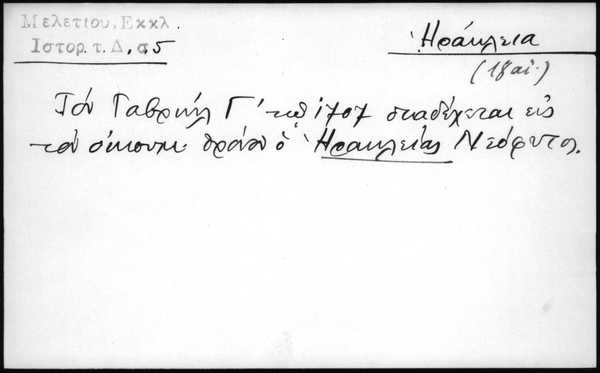 Μελετίου, Εκκλ.
Ιστορ. τ. Δ, σ 5
Ἡράκλεια
(18 αἰ.)
Τόν Γαβριήλ Γ' τῷ 1707 διαδέχεται εἰς
τόν οἰκουμ. θρόνον ὁ Ἡρακλείας Νεόφυτος.